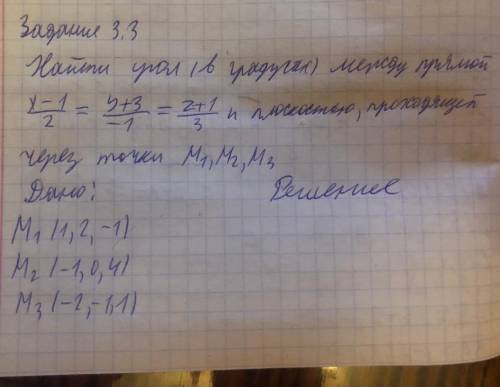 Задания 3.3
Найти угол (в градусах) между прямой
x-1/2 = y+3/-1 = z+1/3 и плоскостью, проходящей
через точки M1, M2, M3
Дано: Решение
M1 (1, 2, -1)
M2 (-1, 0, 4)
M3 (-2, -1, 1)